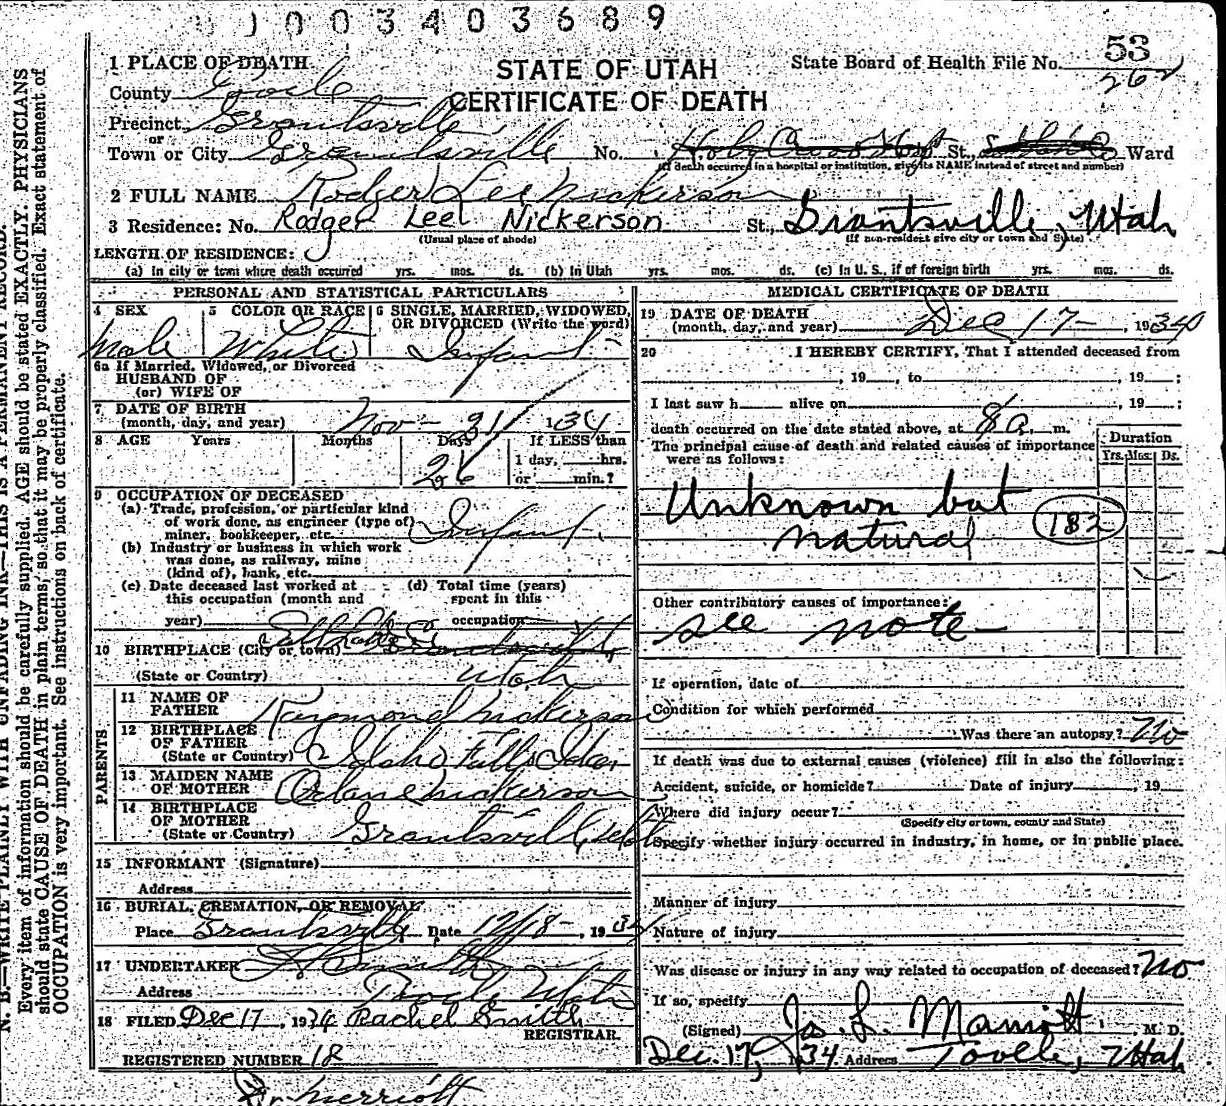 003403689
1 PLACE OF DEATH
STATE OF UTAH
CERTIFICATE OF DEATH
State Board of Health File No. 53
262
County Tooele
Precinct Grantsville
or
Town or City Grantsville No. Holy Cross Hosp St., Ward
(If death occurred in a hospital or institution, give its NAME instead of street and number)
2 FULL NAME Rodger Lee Nickerson
3 Residence: No. Rodger Lee Nickerson St., Grantsville, Utah
(Usual place of abode) (If non-resident give city or town and State)
LENGTH OF RESIDENCE:
(a) In city or town where death occurred yrs. mos. ds. (b) In Utah yrs. mos. ds. (c) In U. S., if of foreign birth yrs. mos. ds.
PERSONAL AND STATISTICAL PARTICULARS
4 SEX 5 COLOR OR RACE 6 SINGLE, MARRIED, WIDOWED, OR DIVORCED (Write the word)
Male White Infant
6a If Married, Widowed, or Divorced
HUSBAND OF
(or) WIFE OF
7 DATE OF BIRTH
(month, day, and year) Nov - 21 / 34
8 AGE Years Months Days If LESS than
26 1 day, hrs.
or min.?
9 OCCUPATION OF DECEASED
(a) Trade, profession, or particular kind
of work done, as engineer (type of)
miner, bookkeeper, etc. Infant
(b) Industry or business in which work
was done, as railway, mine
(kind of), bank, etc.
(c) Date deceased last worked at (d) Total time (years)
this occupation (month and spent in this
year) occupation
10 BIRTHPLACE (City or town) Salt Lake City Grantsville
(State or Country) Utah
PARENTS
11 NAME OF
FATHER Raymond Nickerson
12 BIRTHPLACE
OF FATHER
(State or Country) Idaho Falls Idaho
13 MAIDEN NAME
OF MOTHER Nickerson
14 BIRTHPLACE
OF MOTHER
(State or Country) Grantsville Utah
15 INFORMANT (Signature)
Address
16 BURIAL, CREMATION, OR REMOVAL
Place Grantsville Date 12/18 - , 1934
17 UNDERTAKER Smith
Address Tooele Utah
18 FILED Dec 17, 1934 Rachel Smith
REGISTRAR
REGISTERED NUMBER 18
Dr Merriott
MEDICAL CERTIFICATE OF DEATH
19 DATE OF DEATH
(month, day, and year) Dec 17 - 1934
20 I HEREBY CERTIFY, That I attended deceased from
, 19 , to , 19 ;
I last saw h alive on , 19 ;
death occurred on the date stated above, at 8 a. m.
The principal cause of death and related causes of importance
were as follows:
Duration
Yrs. Mos. Ds.
Unknown but
natural 182
Other contributory causes of importance:
see note
If operation, date of
Condition for which performed
Was there an autopsy? No
If death was due to external causes (violence) fill in also the following:
Accident, suicide, or homicide? Date of injury , 19
Where did injury occur?
(Specify city or town, county and State)
Specify whether injury occurred in industry, in home, or in public place.
Manner of injury
Nature of injury
Was disease or injury in any way related to occupation of deceased? No
If so, specify
(Signed) Jos. L. Marriott, M. D.
Dec. 17, 1934 Address Tooele, Utah
N. B.—WRITE PLAINLY WITH UNFADING INK—THIS IS A PERMANENT RECORD.
Every item of information should be carefully supplied. AGE should be stated EXACTLY. PHYSICIANS
should state CAUSE OF DEATH in plain terms, so that it may be properly classified. Exact statement of
OCCUPATION is very important. See instructions on back of certificate.